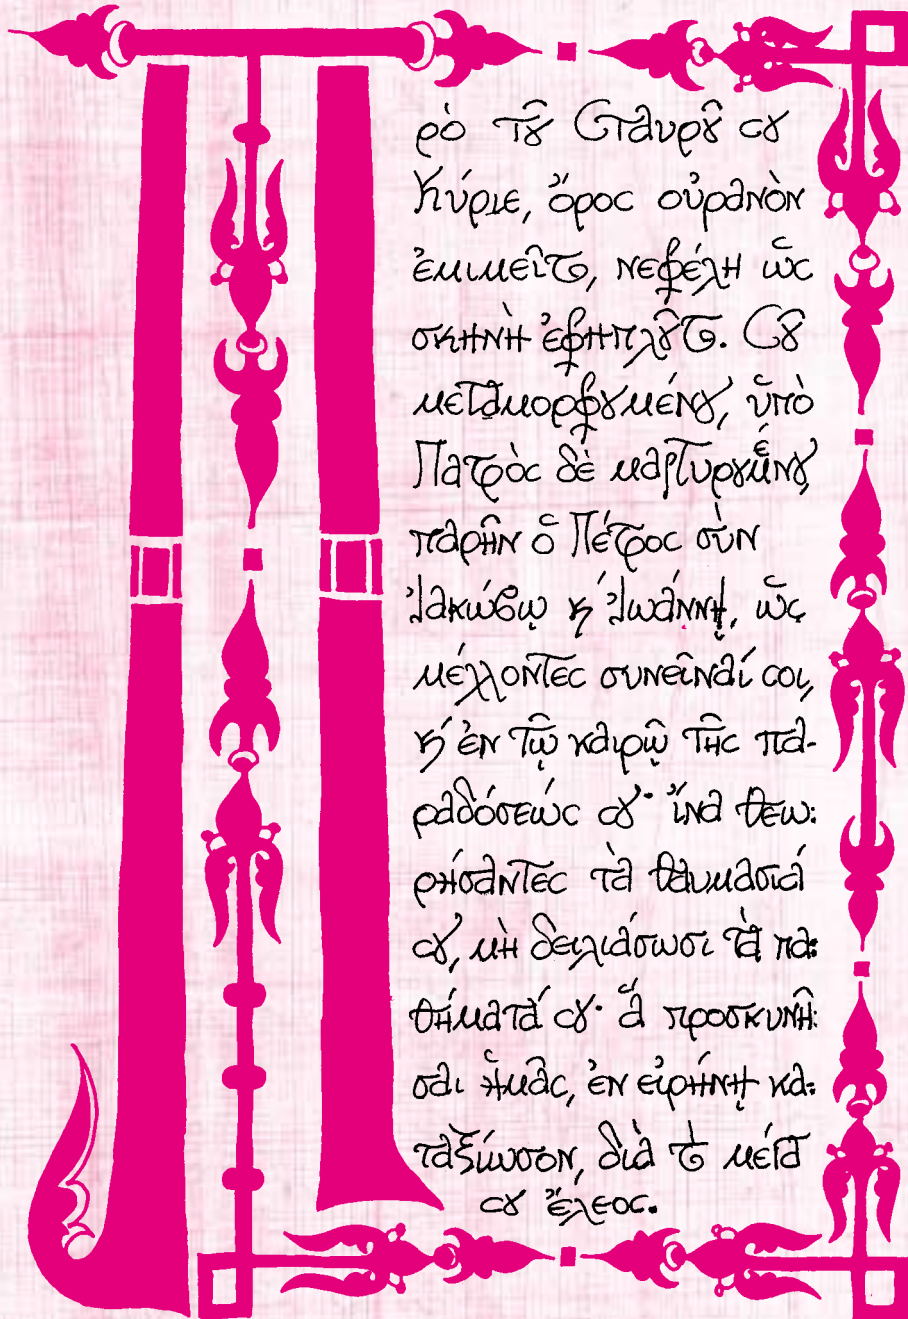 Πρὸ τȣ͂ Σταυρȣ͂ σȣ
Κύριε, ὄρος οὐρανὸν
ἐμιμεῖτο, νεφέλη ὡς
σκηνὴ ἐφηπλȣ͂το. Σȣ͂
μεταμορφȣμένȣ, ὑπὸ
Πατρὸς δὲ μαρτυρȣμένȣ,
παρῆν ὁ Πέτρος σὺν
Ἰακώβῳ ϗ Ἰωάννῃ, ὡς
μέλλοντες συνεῖναί σοι,
ϗ ἐν τῷ καιρῷ τῆς πα-
ραδόσεώς σȣ· ἵνα θεω:
ρήσαντες τὰ θαυμασιά
σȣ, μὴ δειλιάσωσι τὰ πα:
θήματά σȣ· ἃ προσκυνῆ:
σαι ἡμᾶς, ἐν εἰρήνῃ κα:
ταξίωσον, διὰ τὸ μέγα
σȣ ἔλεος.